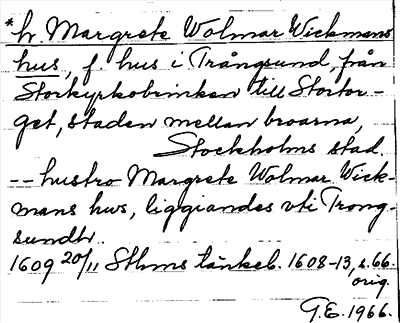 *hr. Margrete Wolmar Wickmans
hus, f. hus i Trångsund, från
Storkyrkobrinken till Stortor-
get, staden mellan broarna,
Stockholms stad.
-- hustro Margrete Wolmar Wick-
mans hws, liggiandes vti Trong-
sundtr.
1609 20/11 Sthms tänkeb. 1608-13, s. 66.
orig.
G.E. 1966.